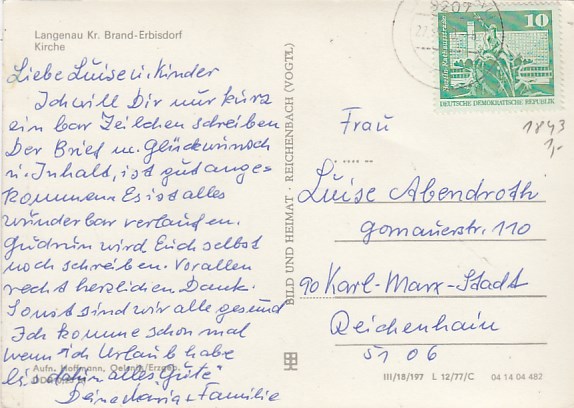 Langenau Kr. Brand-Erbisdorf
Kirche
Liebe Luise u. Kinder
Ich will Dir nur kurz
ein bar Zeilchen schreiben
Der Brief m. Glückwunsch
u. Inhalt, ist gut ange-
kommen. Es ist alles
wunderbar verlaufen.
Gudrun wird Euch selbst
noch schreiben. Vorallen
recht herzlichen Dank.
Sonst sind wir alle gesund
Ich komme schon mal
wenn ich Urlaub habe
bis dahin alles Gute"
Deine Maria u. Familie
Aufn. Hoffmann, Oelsnitz/Erzgeb.
BILD UND HEIMAT · REICHENBACH (VOGTL)
10
Berlin, Rathausstraße
DEUTSCHE DEMOKRATISCHE REPUBLIK
1843
1,-
Frau
Luise Abendroth
Gornauerstr. 110
90 Karl-Marx-Stadt
Reichenhain
5106
III/18/197 L 12/77/C 04 14 04 482